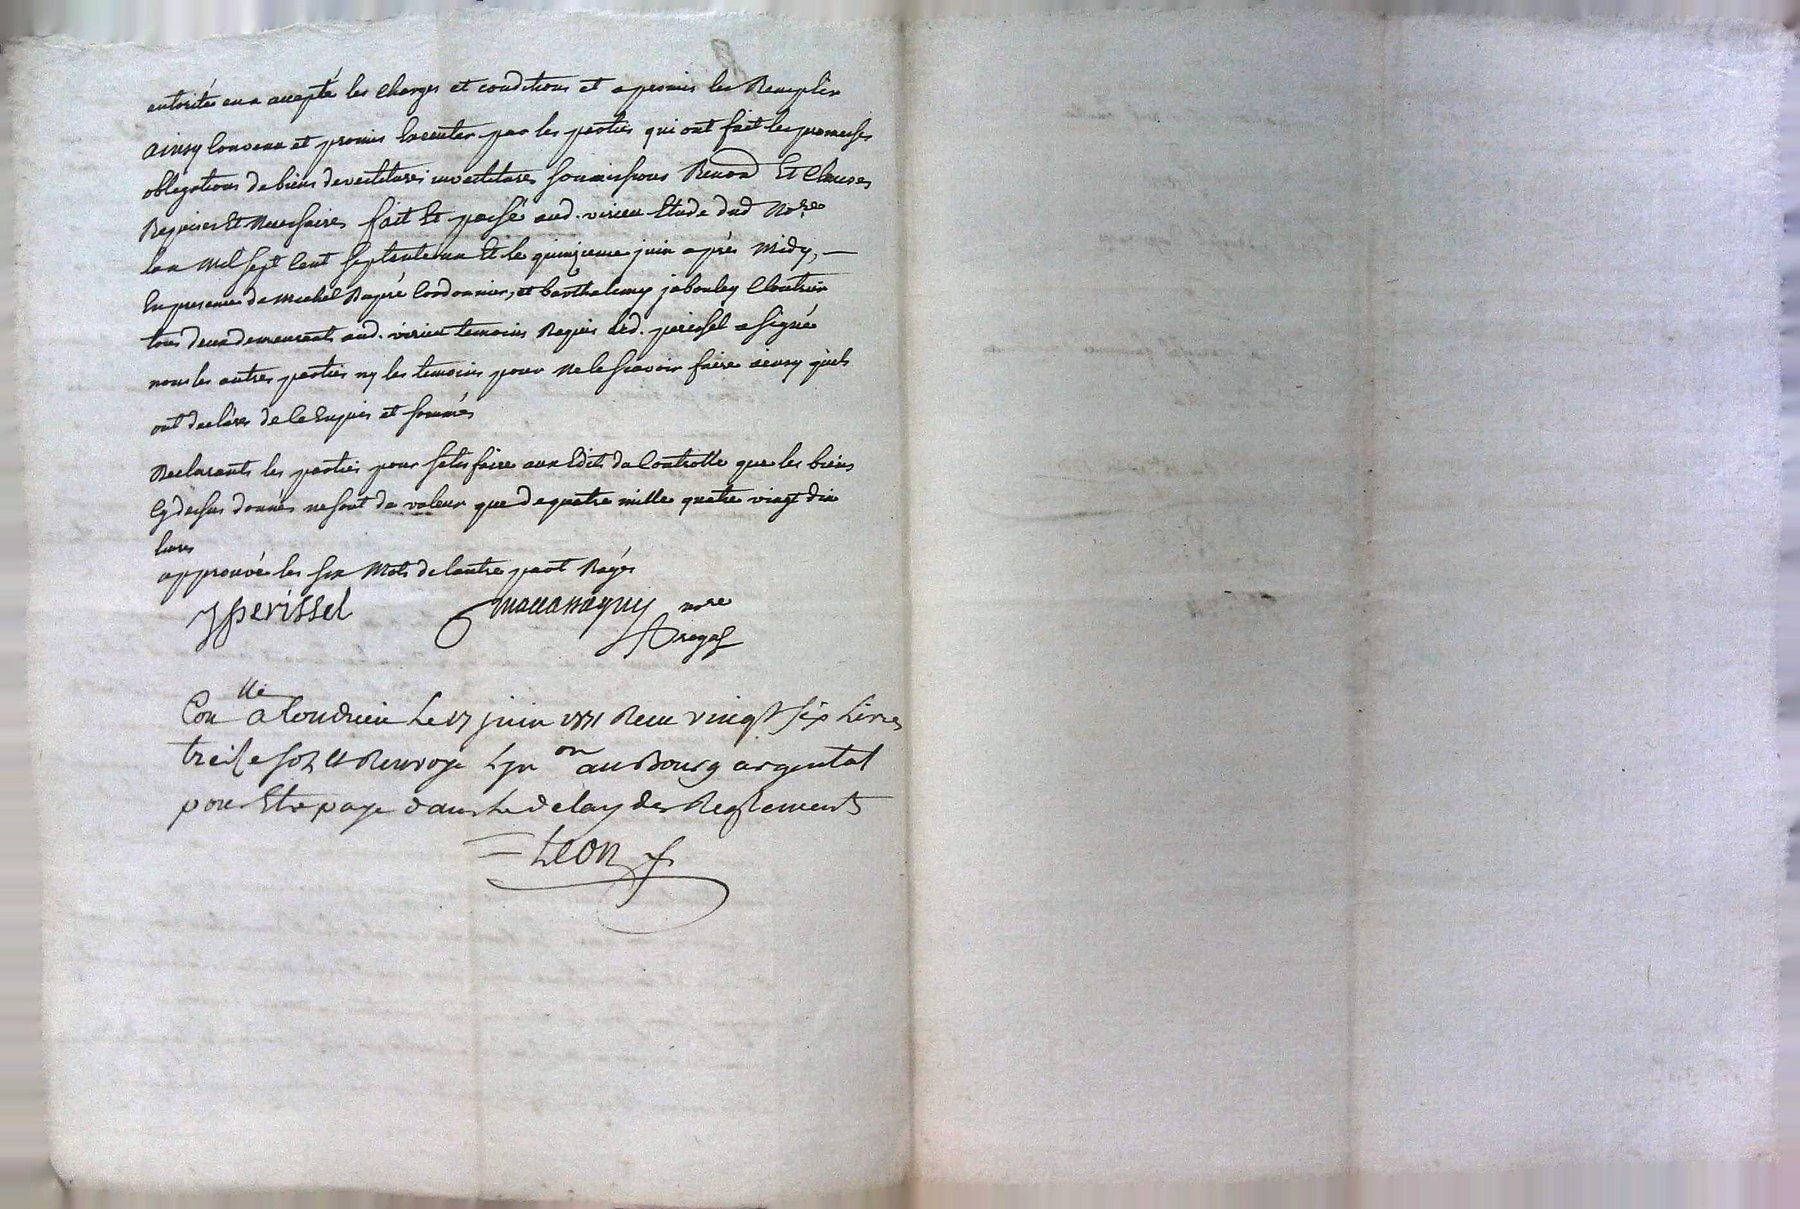 autorité en a accepté les charges et conditions et a promis les Remplir
ainsy Convenu et promis Executer par les parties qui ont fait les promesses
obligations de biens devestitures investitures soumissions Renond Et Clauses
Requises Et Necessaires fait Et passé aud. virieu Etude dud Nore
Lan Mil sept Cent septante un Et le quinzieme juin après Midy, —
En presence de Michel Bayré Cordonnier, et Barthelemy jabouley Cloutier
tous deux demeurants aud. virieu temoins Requis led. perissel a signé
non les autres parties ny les temoins pour ne le sçavoir faire ainsy quils
ont declarés de ce Enquis et sommés
Declarants les parties pour satisfaire aux Edits du Controlle que les biens
Cy dessus donnés ne sont de valeur que de quatre mille quatre vingt dix
livres
approuvé les six Mots de lautre part Rayés
J perissel nore
Conlle a Condrieu Le 17 juin 1771 Recu vingt six Livres
treize sols et Renvoye Linon au Bourg argental
pour Etre paye dans Le delay des Reglements
Leon